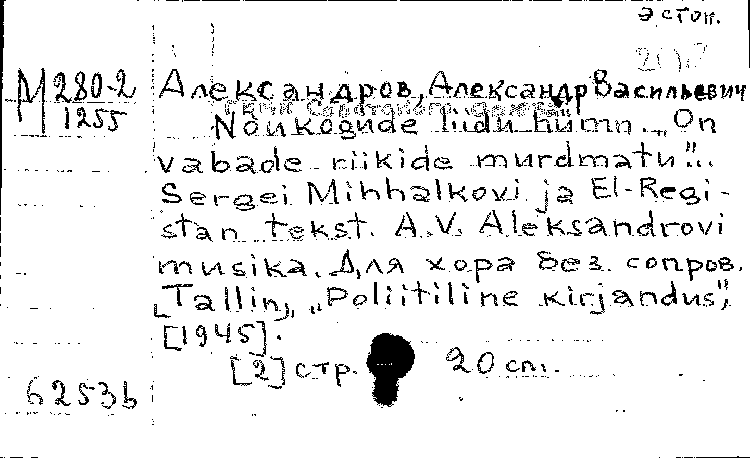 эстон.
М 280-2
1255
Александров, Александр Васильевич
Nõukogude liidu hümn. „On
vabade riikide murdmatu"...
Sergei Mihhalkovi ja El-Regi-
stan tekst. A.V. Aleksandrovi
musika. Для хора без сопров.
[Tallin], „Poliitiline kirjandus",
[1945].
[2] стр. 20 сm.
6253b